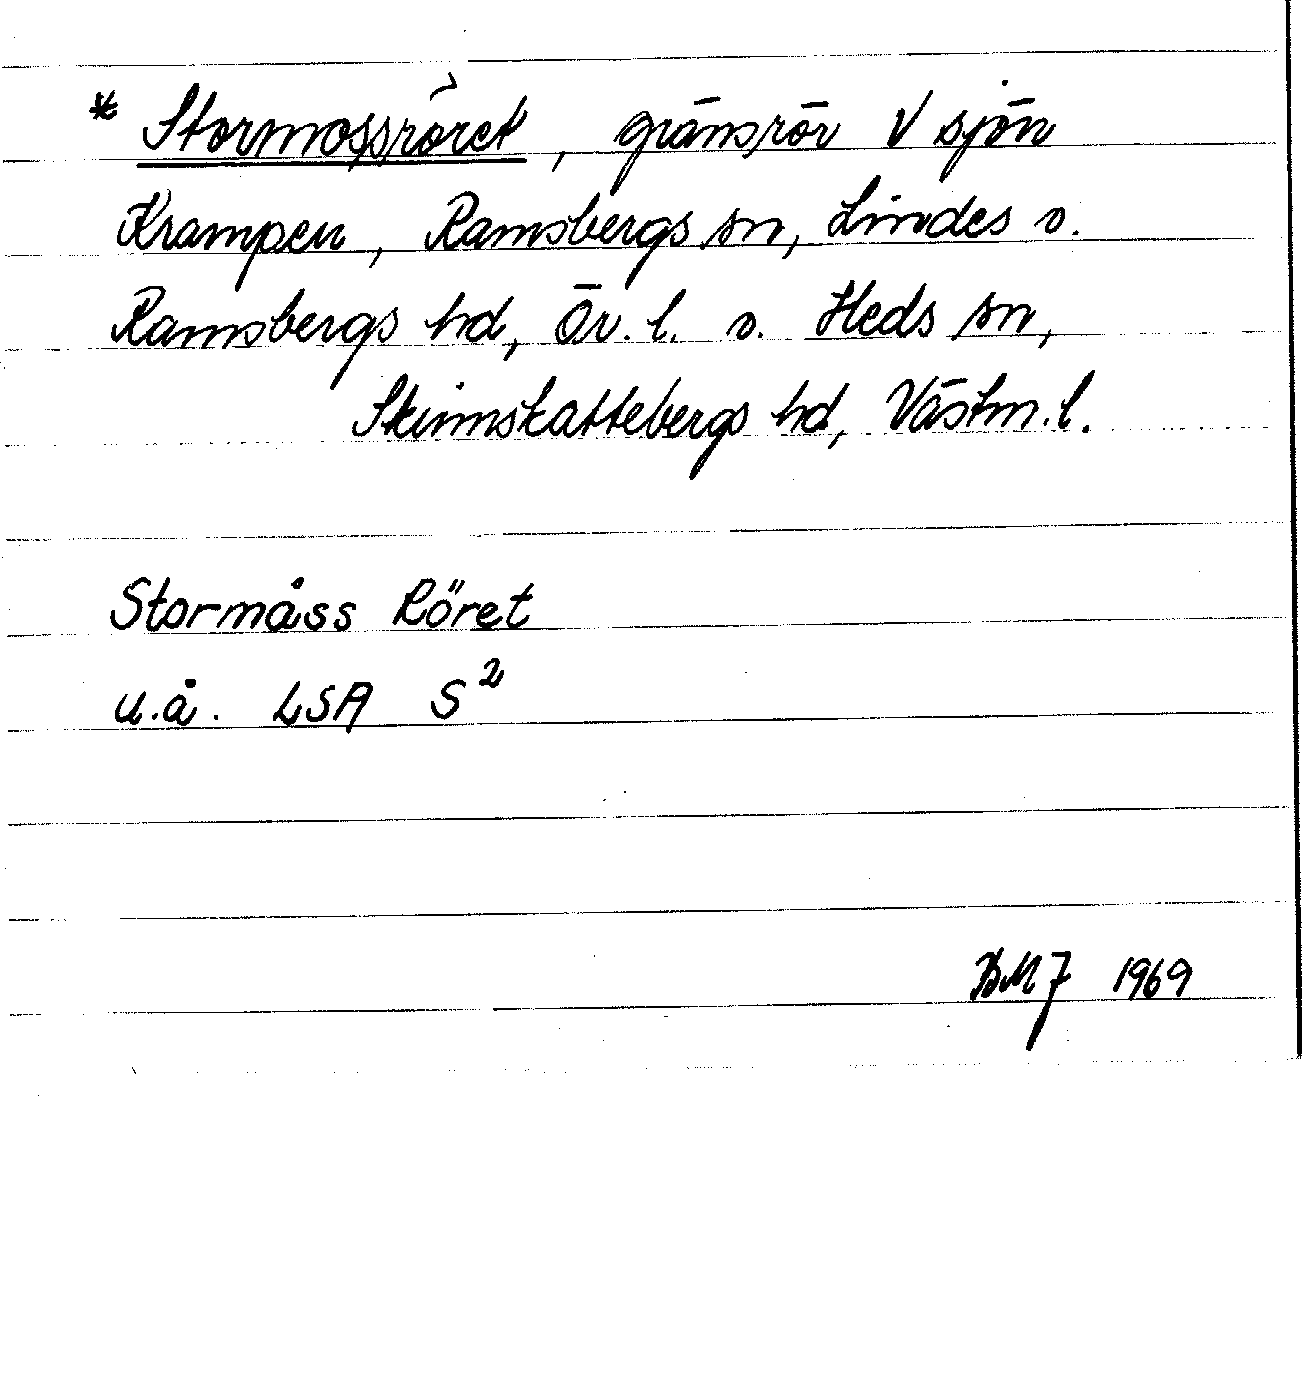 * Stormossröret, gränsrör V sjön
Krampen, Ramsbergs sn, Lindes o.
Ramsbergs hd, Ör. l. o. Heds sn,
Skinnskattebergs hd, Västm. l.
Stormåss Röret
u.å. LSA S²
BMJ 1969